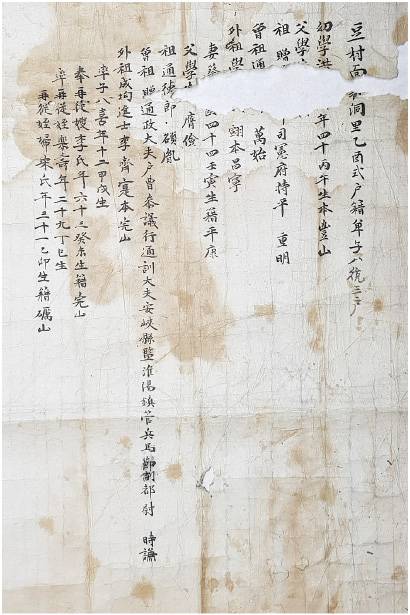 豆村面 洞里乙酉式戶籍單子八統三戶
幼學洪 年四十丙午生本豊山
父學
祖 贈 司憲府持平 重明
曾祖通 萬始
外祖學 翊本昌寧
妻 四十四壬寅生籍平康
父學 膺儉
祖通德郎 碩胤
曾祖 贈通政大夫戶曹參議行通訓大夫安峽縣監淮陽鎮管兵馬節制都尉 時謙
外祖成均進士李齊寔本完山
率子八喜年十二甲戌生
奉再從嫂李氏年六十三癸未生籍完山
率再從姪樂 年二十九丁巳生
再從姪婦宋氏年三十一乙卯生籍礪山